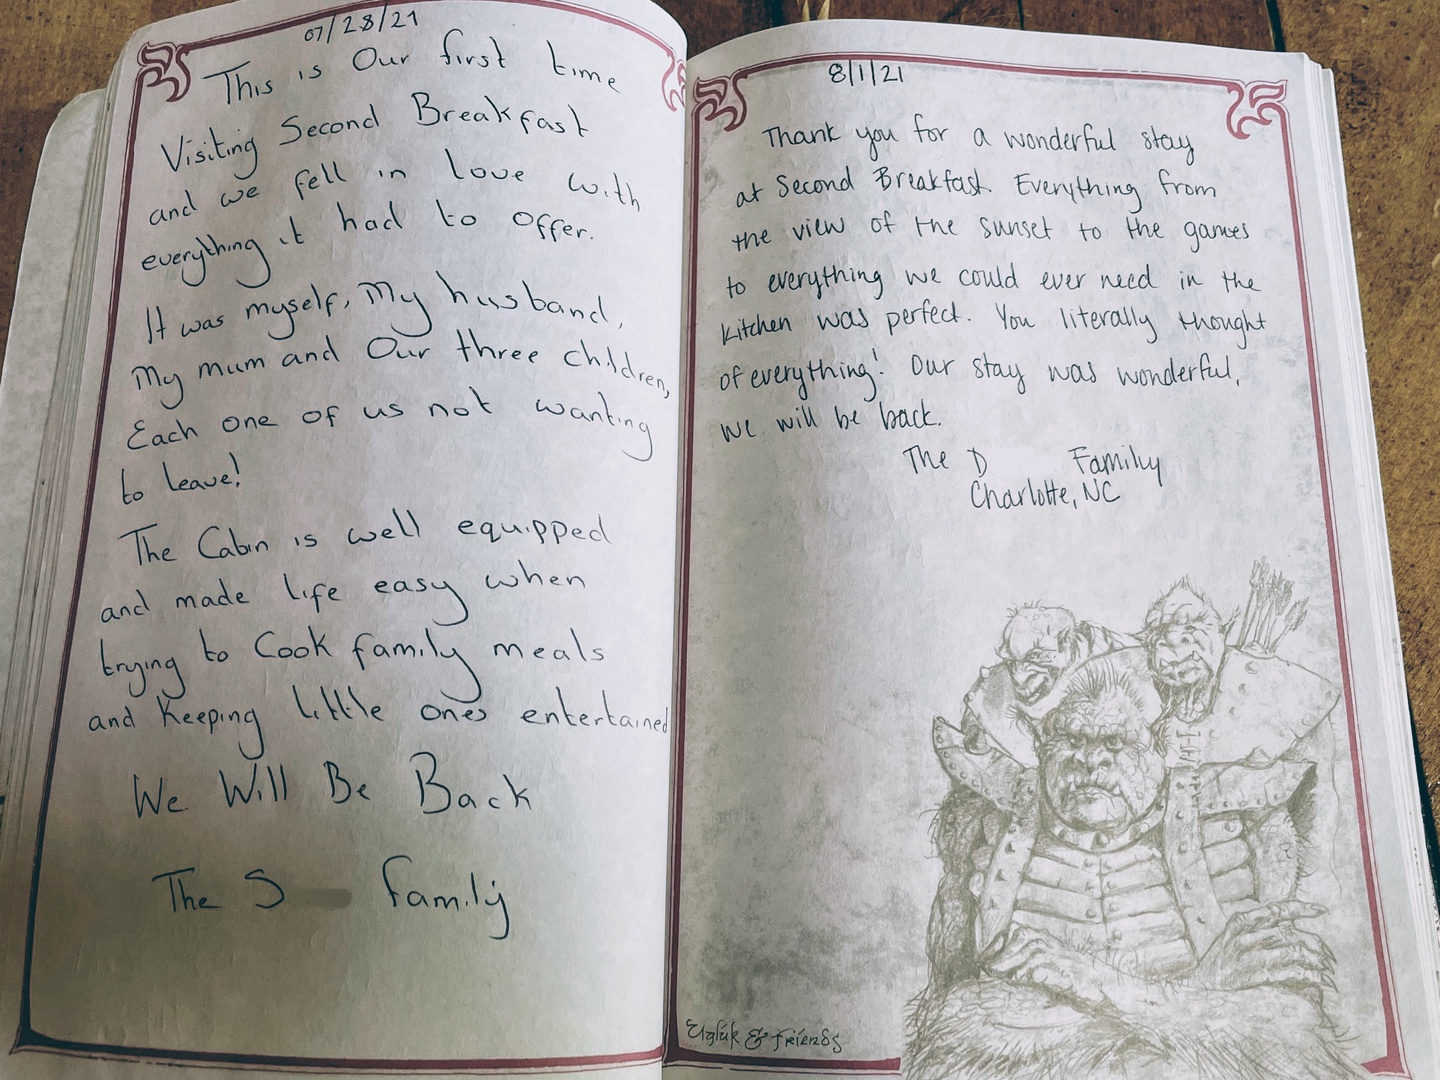 07/28/21
This is Our first time
Visiting Second Breakfast
and we fell in love with
everything it had to offer.
It was myself, My husband,
My mum and Our three children,
Each one of us not wanting
to leave!
The Cabin is well equipped
and made life easy when
trying to Cook family meals
and Keeping little ones entertained
We Will Be Back
The S family
8/1/21
Thank you for a wonderful stay
at Second Breakfast. Everything from
the view of the sunset to the games
to everything we could ever need in the
kitchen was perfect. You literally thought
of everything! Our stay was wonderful,
we will be back.
The D Family
Charlotte, NC
Uglúk & friends